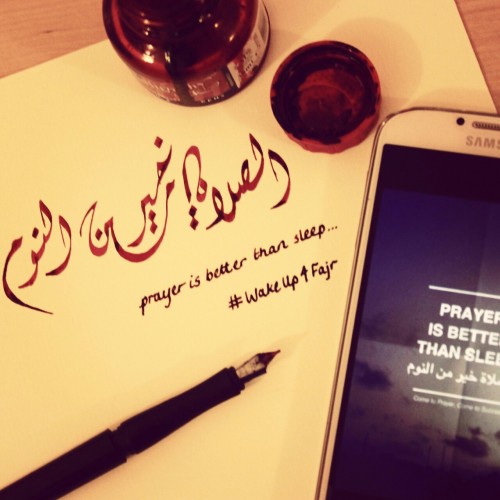 الصلاة خير من النوم
prayer is better than sleep...
#WakeUp4Fajr
SAMS
PRAYER
IS BETTE
THAN SLEE
لاة خير من النوم
Come to Prayer, Come to Succe